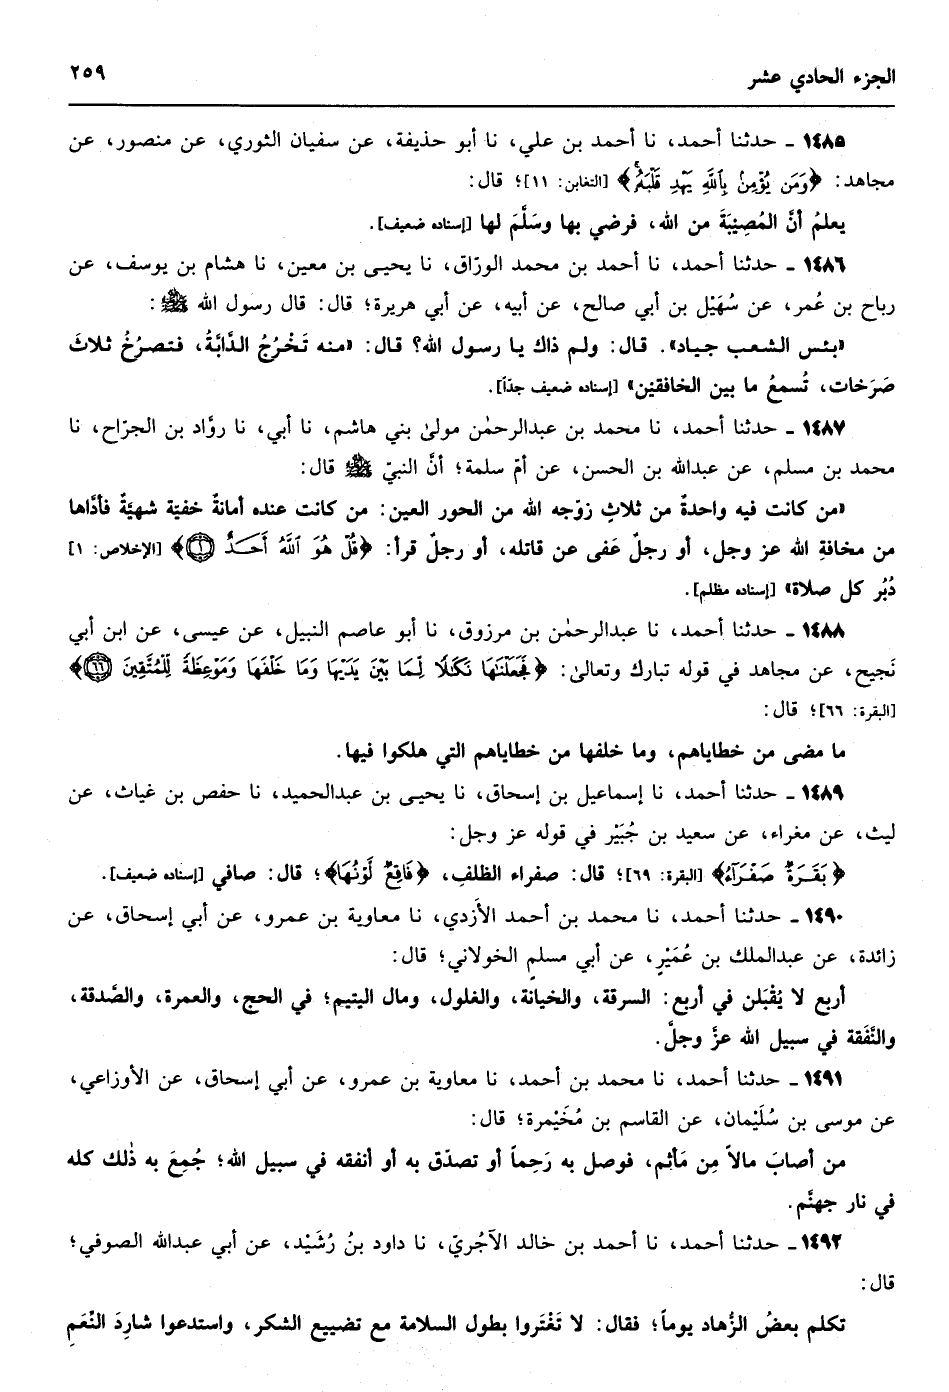 الجزء الحادي عشر
٢٥٩
١٤٨٥ ـ حدثنا أحمد، نا أحمد بن علي، نا أبو حذيفة، عن سفيان الثوري، عن منصور، عن
مجاهد: ﴿وَمَن يُؤْمِنۢ بِٱللَّهِ يَهْدِ قَلْبَهُۥۚ﴾ [التغابن: ١١]؛ قال:
يعلمُ أنَّ المُصِيْبَةَ من الله، فرضي بها وسَلَّمَ لها [إسناده ضعيف].
١٤٨٦ ـ حدثنا أحمد، نا أحمد بن محمد الورّاق، نا يحيى بن معين، نا هشام بن يوسف، عن
رباح بن عُمر، عن سُهَيْل بن أبي صالح، عن أبيه، عن أبي هريرة؛ قال: قال رسول الله ﷺ:
«بئس الشعب جياد». قال: ولم ذاك يا رسول الله؟ قال: «منه تَخْرُجُ الدَّابَّةُ، فتصرُخُ ثلاثَ
صَرَخات، تُسمعُ ما بين الخافقيْن» [إسناده ضعيف جدّاً].
١٤٨٧ ـ حدثنا أحمد، نا محمد بن عبدالرحمٰن مولىٰ بني هاشم، نا أبي، نا روَّاد بن الجرّاح، نا
محمد بن مسلم، عن عبدالله بن الحسن، عن أمّ سلمة؛ أنَّ النبيّ ﷺ قال:
«من كانت فيه واحدةٌ من ثلاثٍ زوّجه الله من الحور العين: من كانت عنده أمانةٌ خفيّة شهيَّةٌ فأدَّاها
من مخافةِ الله عز وجل، أو رجلٌ عَفى عن قاتله، أو رجلٌ قرأ: ﴿قُلْ هُوَ ٱللَّهُ أَحَدٌ ۝١﴾ [الإخلاص: ١]
دُبُر كل صلاة» [إسناده مظلم].
١٤٨٨ ـ حدثنا أحمد، نا عبدالرحمٰن بن مرزوق، نا أبو عاصم النبيل، عن عيسى، عن ابن أبي
نَجيح، عن مجاهد في قوله تبارك وتعالىٰ: ﴿فَجَعَلْنَٰهَا نَكَٰلًا لِّمَا بَيْنَ يَدَيْهَا وَمَا خَلْفَهَا وَمَوْعِظَةً لِّلْمُتَّقِينَ ۝٦٦﴾
[البقرة: ٦٦]؛ قال:
ما مضى من خطاياهم، وما خلفها من خطاياهم التي هلكوا فيها.
١٤٨٩ ـ حدثنا أحمد، نا إسماعيل بن إسحاق، نا يحيى بن عبدالحميد، نا حفص بن غياث، عن
ليث، عن مغراء، عن سعيد بن جُبَيْر في قوله عز وجل:
﴿بَقَرَةٌ صَفْرَآءُ﴾ [البقرة: ٦٩]؛ قال: صفراء الظلف، ﴿فَاقِعٌ لَّوْنُهَا﴾؛ قال: صافي [إسناده ضعيف].
١٤٩٠ ـ حدثنا أحمد، نا محمد بن أحمد الأَزدي، نا معاوية بن عمرو، عن أبي إسحاق، عن
زائدة، عن عبدالملك بن عُمَيْرٍ، عن أبي مسلمٍ الخولاني؛ قال:
أربع لا يُقْبَلن في أربع: السرقة، والخيانة، والغلول، ومال اليتيم؛ في الحج، والعمرة، والصَّدقة،
والنَّفَقة في سبيل الله عزَّ وجلَّ.
١٤٩١ ـ حدثنا أحمد، نا محمد بن أحمد، نا معاوية بن عمرو، عن أبي إسحاق، عن الأوزاعي،
عن موسى بن سُلَيْمان، عن القاسم بن مُخَيْمرة؛ قال:
من أصابَ مالاً مِن مَأثم، فوصل به رَحِماً أو تصدّق به أو أنفقه في سبيل الله؛ جُمِعَ به ذٰلك كله
في نار جهنَّم.
١٤٩٢ ـ حدثنا أحمد، نا أحمد بن خالد الآجُريّ، نا داود بنُ رُشَيْد، عن أبي عبدالله الصوفي؛
قال:
تكلم بعضُ الزُّهاد يوماً؛ فقال: لا تَغْتَروا بطول السلامة مع تضييع الشكر، واستدعوا شارِدَ النِّعَمِ